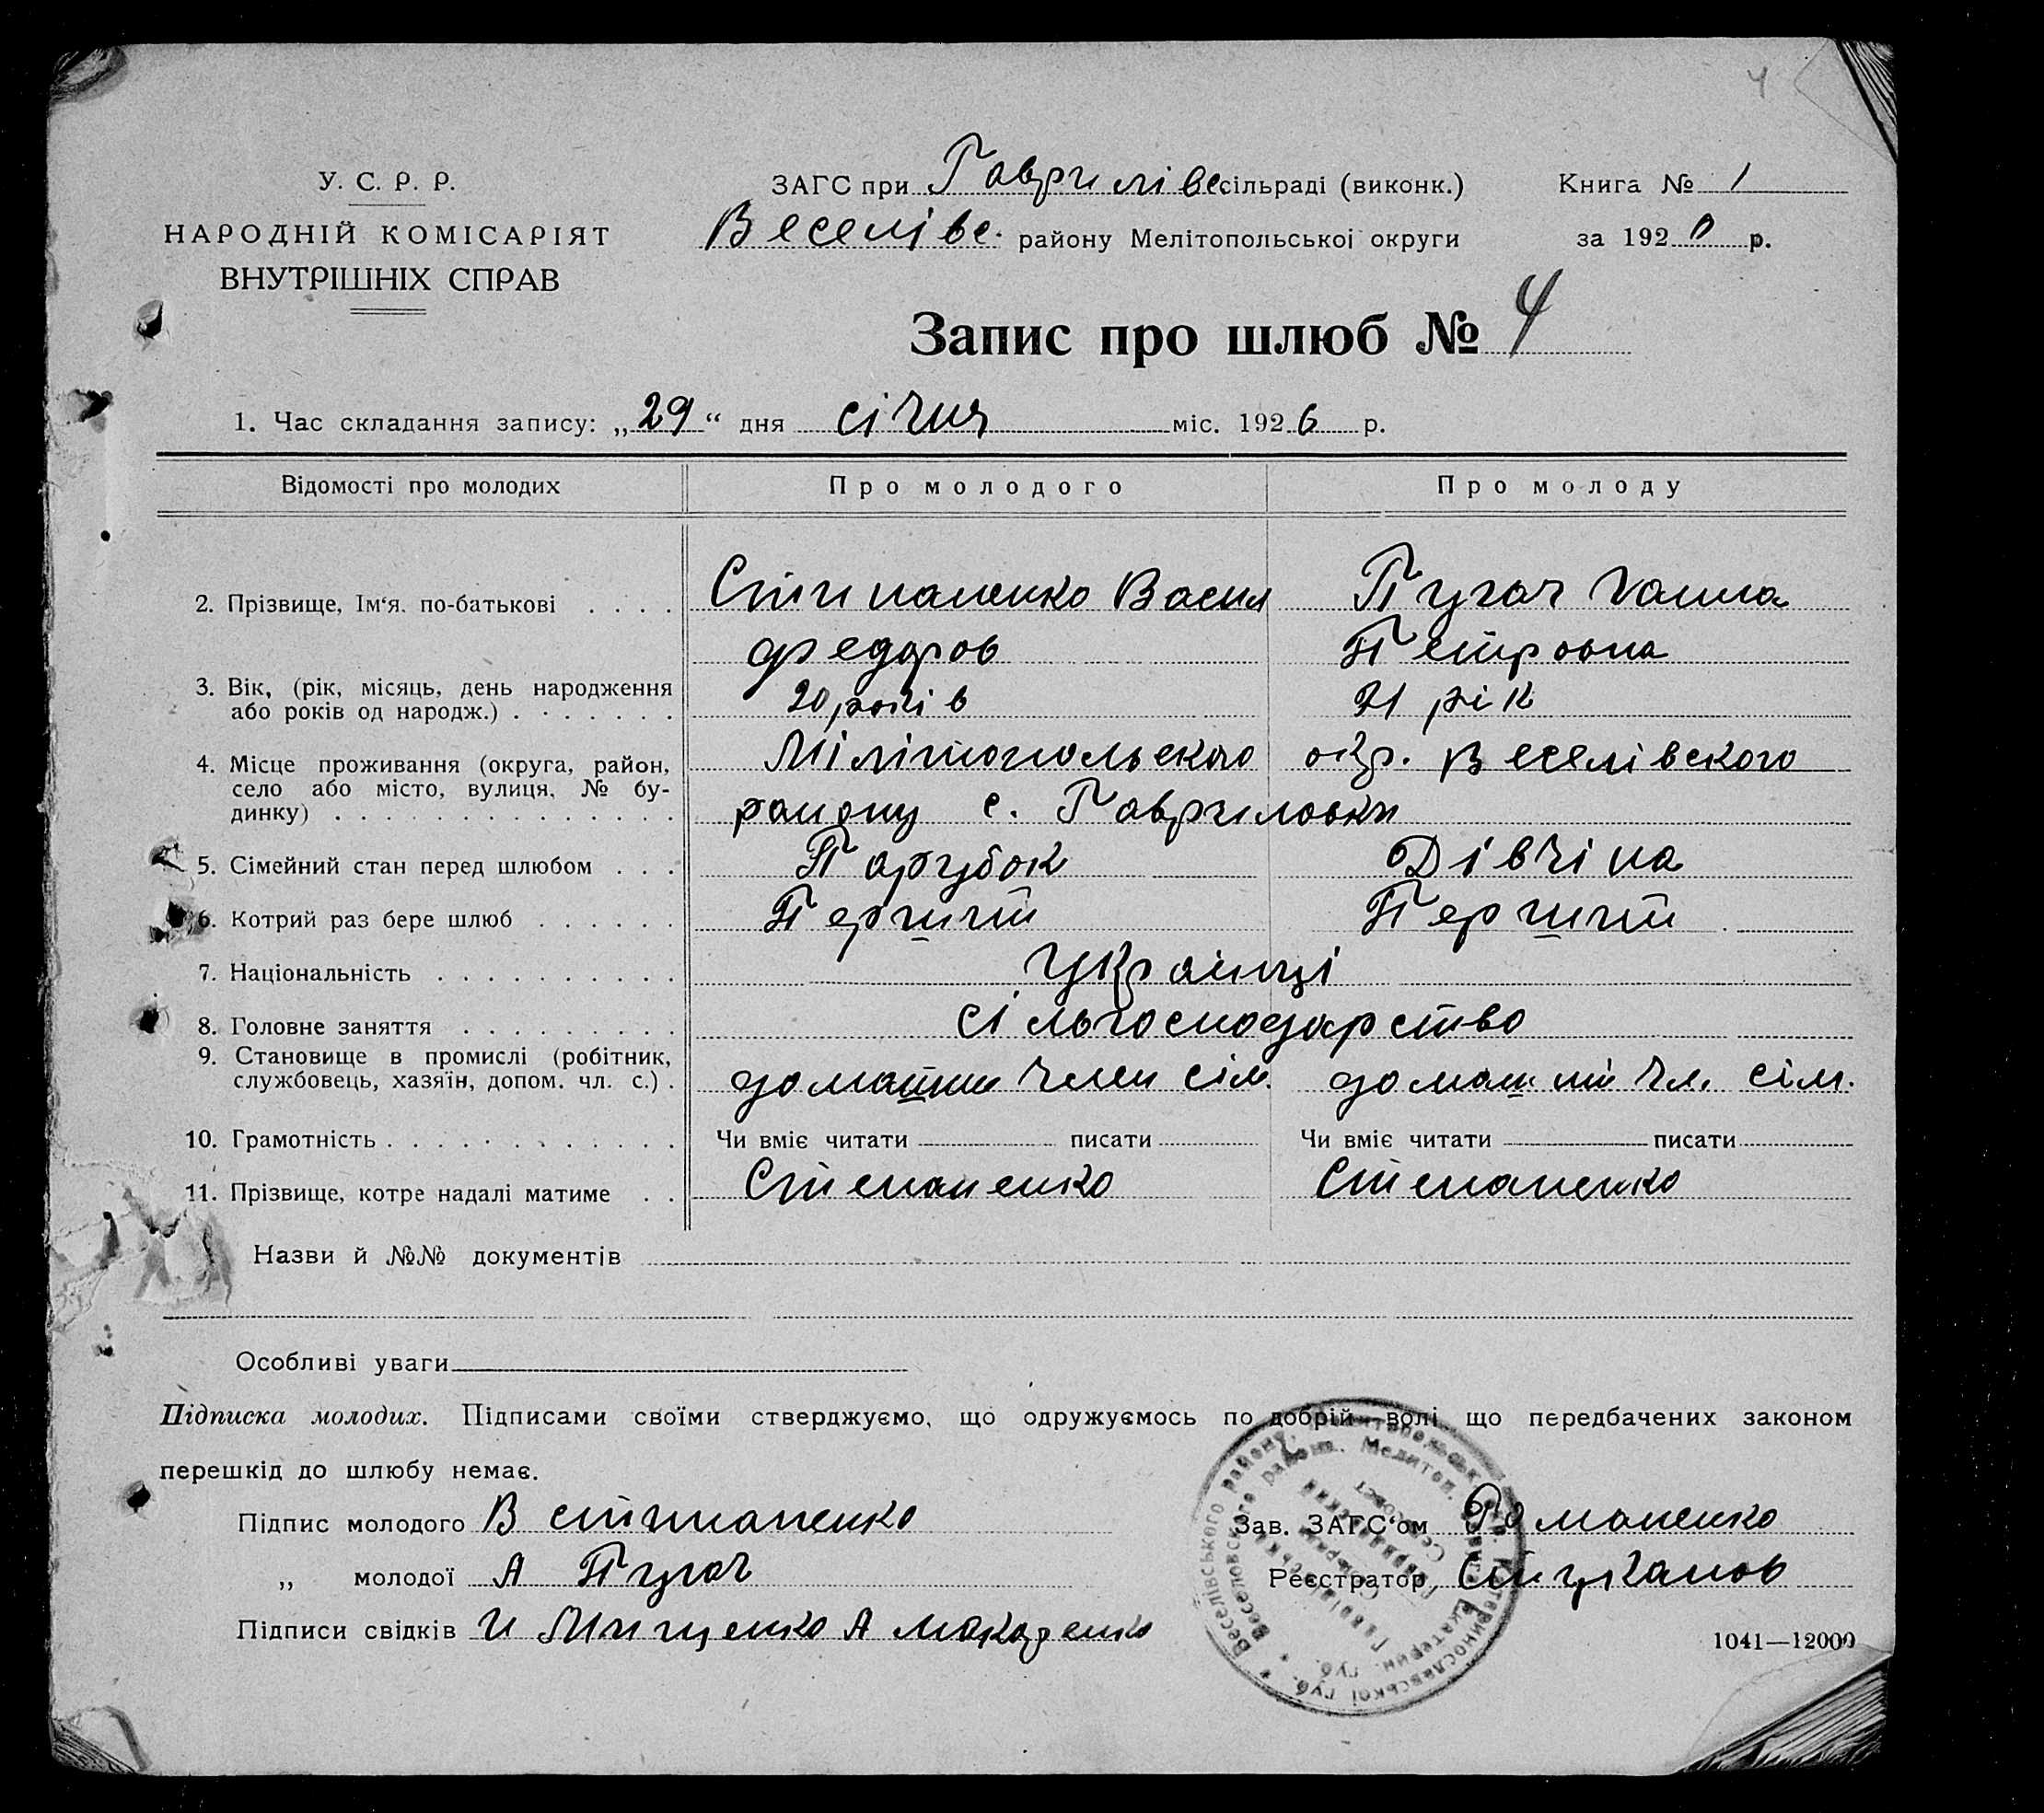 4
У. С. Р. Р.
НАРОДНІЙ КОМІСАРІЯТ
ВНУТРІШНІХ СПРАВ
ЗАГС при Гаврилівс сільраді (виконк.)
Книга № 1
Веселівс. району Мелітопольської округи
за 192 р.
Запис про шлюб № 4
1. Час складання запису: „29“ дня січня міс. 1926 р.
Відомості про молодих Про молодого Про молоду
2. Прізвище, Ім‘я, по-батькові . . . . Стипаненко Васил Пугач Ганна
федоров Петровна
3. Вік, (рік, місяць, день народження
або років од народж.) . . . . . . . 20 років 21 рік
4. Місце проживання (округа, район, Мілітопольского окр. Веселівского
село або місто, вулиця, № бу-
динку) . . . . . . . . . . . . . . . району с. Гавриловки
5. Сімейний стан перед шлюбом . . . Парубок Дівчіна
6. Котрий раз бере шлюб . . . . . . Перший Перший
7. Національність . . . . . . . . . . Українці
8. Головне заняття . . . . . . . . . сільгосподарство
9. Становище в промислі (робітник,
службовець, хазяїн, допом. чл. с.) . домашни член сім. домашні чл. сім.
10. Грамотність . . . . . . . . . . . . Чи вміє читати писати Чи вміє читати писати
11. Прізвище, котре надалі матиме . . Степаненко Степаненко
Назви й №№ документів
Особливі уваги
Підписка молодих. Підписами своїми стверджуємо, що одружуємось по добрій волі що передбачених законом
перешкід до шлюбу немає.
Підпис молодого В стипаненко
Зав. ЗАГС‘ом Романенко
„ молодої А Пугач
Реєстратор Стуканов
Підписи свідків И Мищенко А Макаренко
1041—12000
Веселівського району, Катеринославської губ.
Веселовского района. Мелитоп. Екатерин. губ.